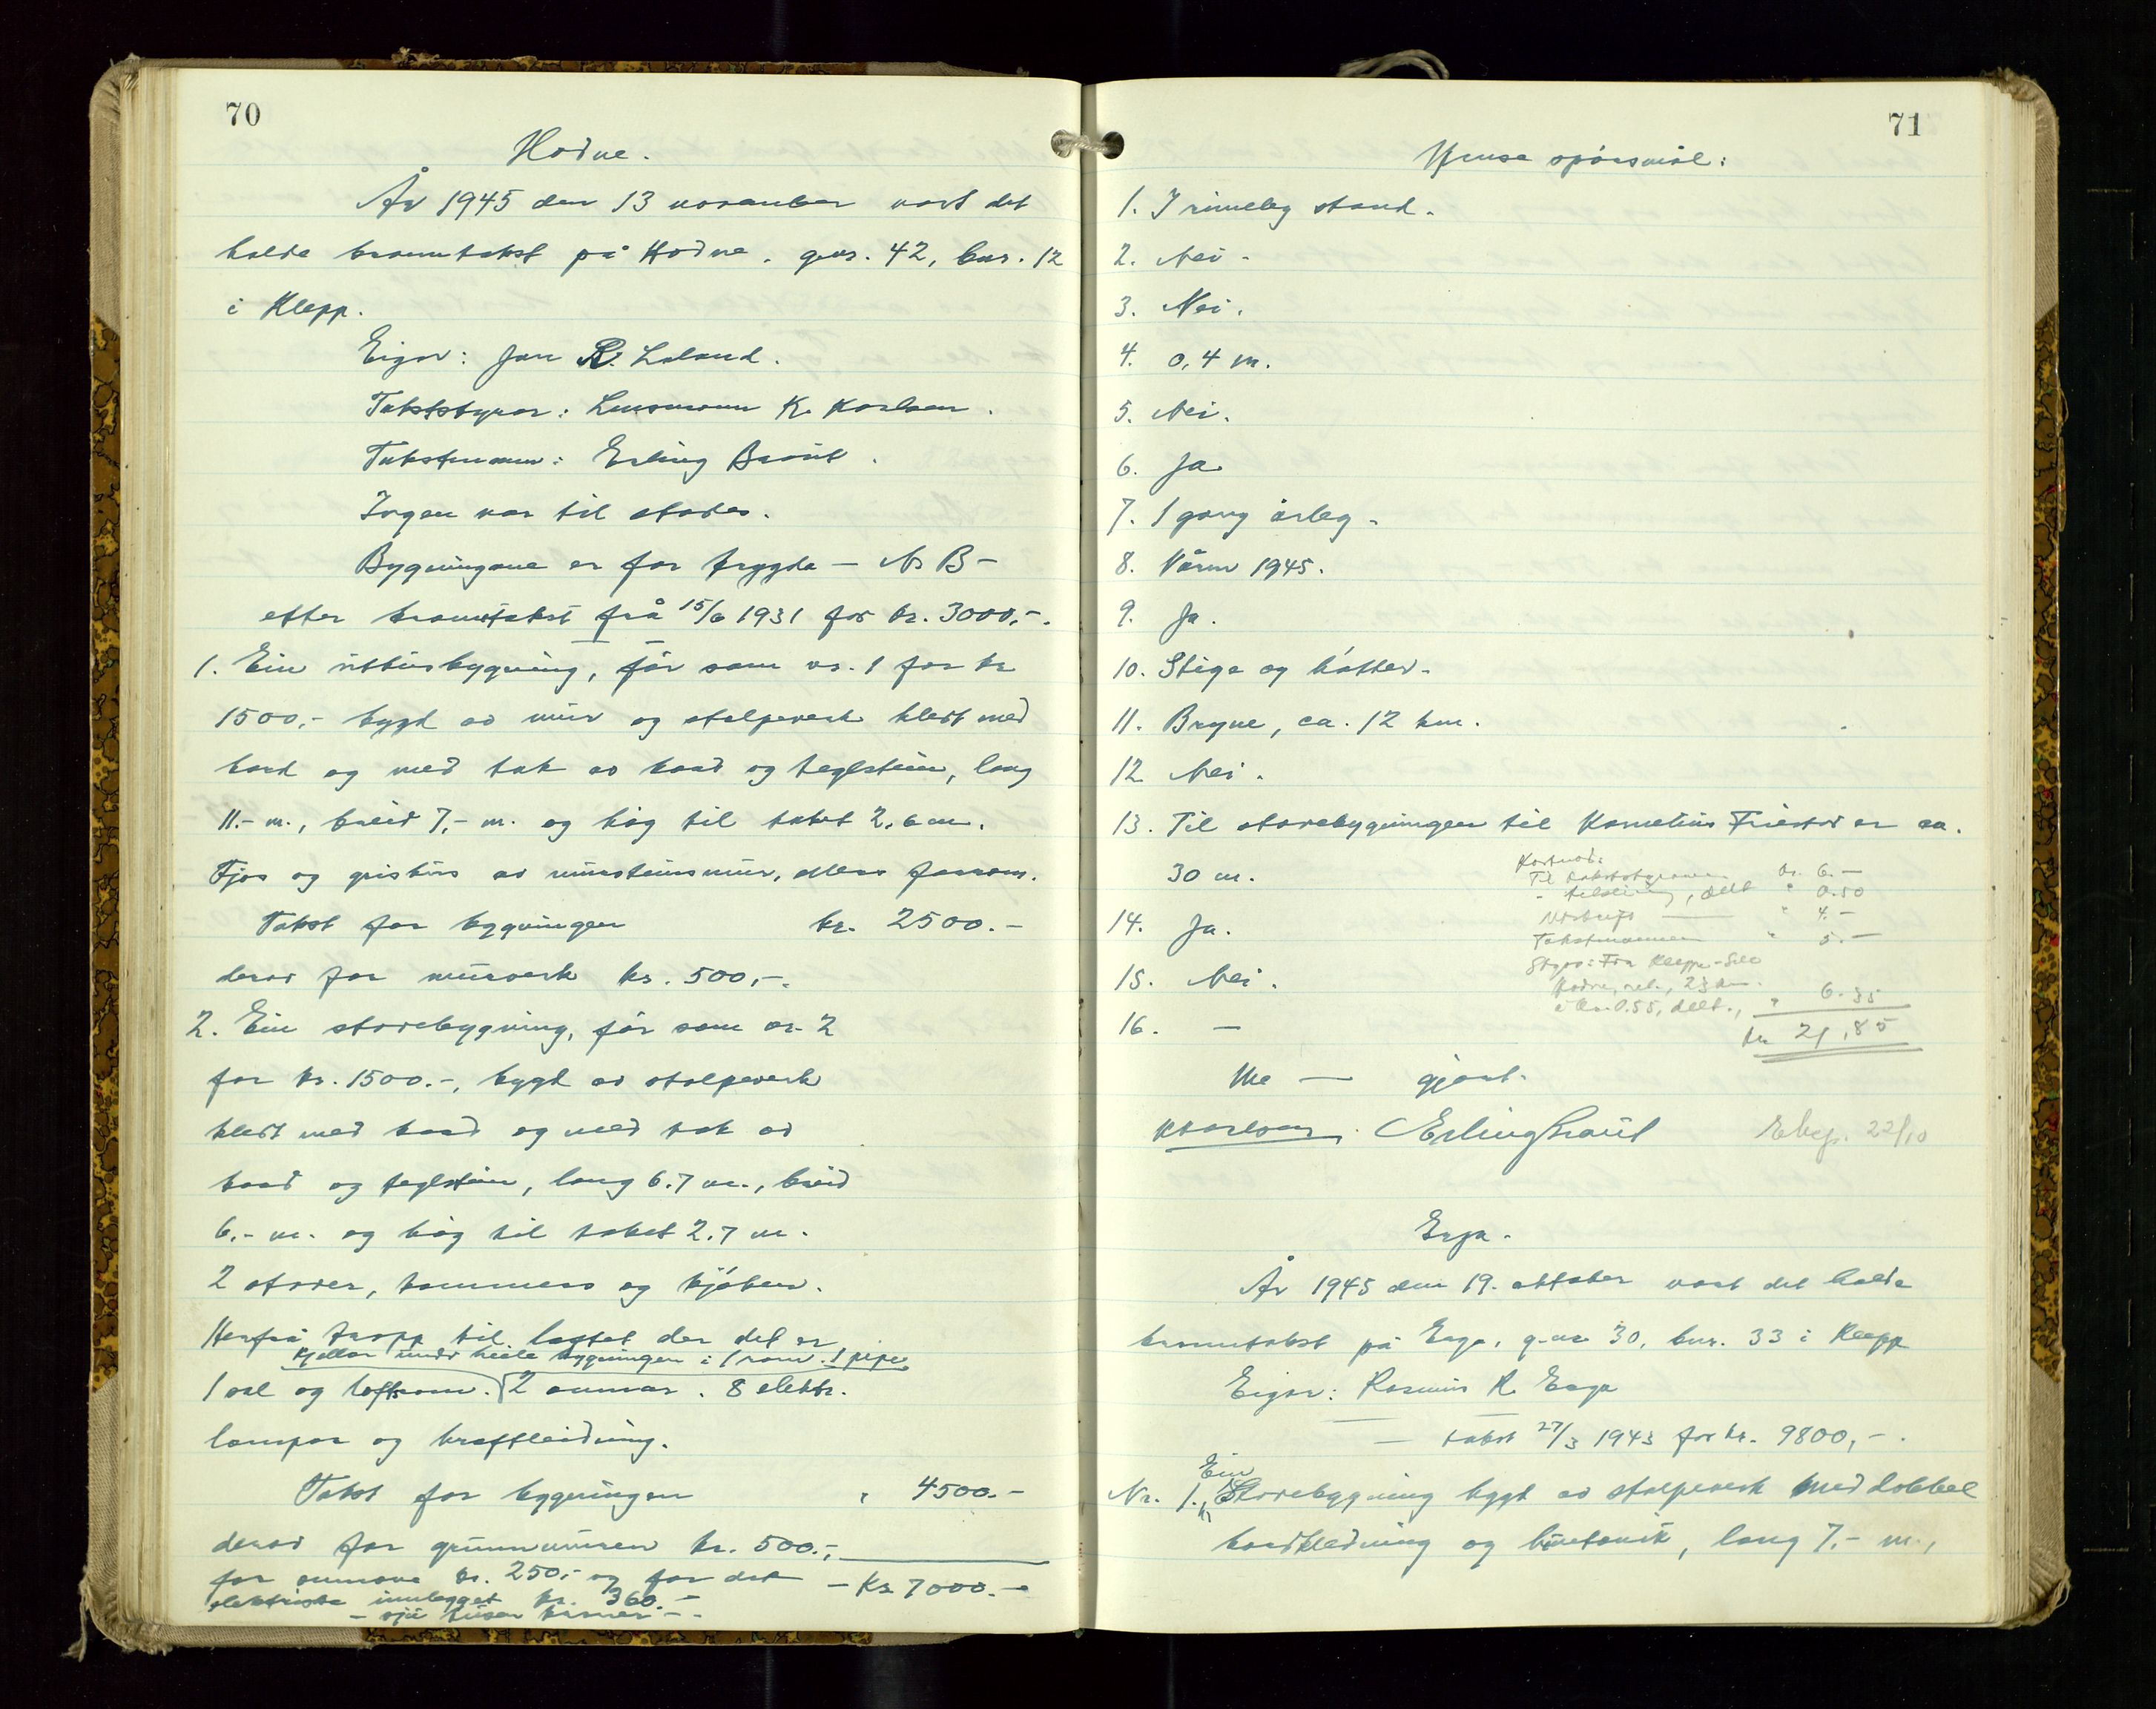 70
Hodne.
År 1945 den 13 november vart det
halde branntakst på Hodne, gnr. 42, bnr. 12
i Klepp.
Eigar: Jan R. Laland.
Takststyrar: Lensmann K. Karlsen.
Takstmann: Erling Braut.
Ingen var til stades.
Bygningane er før trygda — N B —
etter branntakst frå 15/6 1931 for kr. 3000,-.
1. Ein uthusbygning, før som nr. 1 for kr
1500,- bygt av mur og stolpeverk kledt med
bord og med tak av bord og teglstein, lang
11.- m., breid 7,- m. og høg til taket 2,6 m.
Fjos og grishus av murstensmur, elles forrom.
Takst for bygningen kr. 2500.-
derav for murverk kr. 500,-.
2. Ein stovebygning, før som nr. 2
for kr. 1500.-, bygt av stolpeverk
kledt med bord og med tak av
bord og teglstein, lang 6.7 m., breid
6,- m. og høg til taket 2.7 m.
2 stover, kammers og kjøken.
Herfrå tropp til loftet der det er
kjellar under heile bygningen i 1 rom. 1 pipe
1 sal og loftsrom. 2 omnar. 8 elektr.
lampor og kraftleidning.
Takst for bygningen " 4500.-
derav for grunnmuren kr. 500.-,
for omnane kr. 250,- og for det — Kr. 7000.-
elektriske innlegget kr. 360.-
— sju tusen kroner —.
71
Ymse spörsmål:
1. I rimeleg stand.
2. Nei.
3. Nei.
4. 0,4 m.
5. Nei.
6. Ja
7. 1 gang årleg.
8. Våren 1945.
9. Ja.
10. Stige og bøtter.
11. Bryne, ca. 12 km.
12 Nei.
13. Til stovebygningen til Kornelius Friestad er ca.
30 m.
Kostnad:
Til takststyraren kr. 6.-
- tilsining, delt " 0.50
Utskrift — " 4.-
Takstmannen " 5.-
Skyss: Fra Klepp - Sele
Hodne, ret., 23 km.
à kr. 0.55, delt., " 6.35
kr 21,85
14. Ja.
15. Nei.
16. —
Me — gjort.
K Karlsen. Erling Braut
Eksp. 22/10
Erga.
År 1945 den 19. oktober vart det halde
branntakst på Erga, g.nr 30, bnr. 33 i Klepp
Eigar: Rasmus R. Erga
— takst 27/3 1943 for kr. 9800,-.
Nr. 1. Ein Stovebygning bygt av stolpeverk med dobbel
bordkledning og, lang 7.- m.,